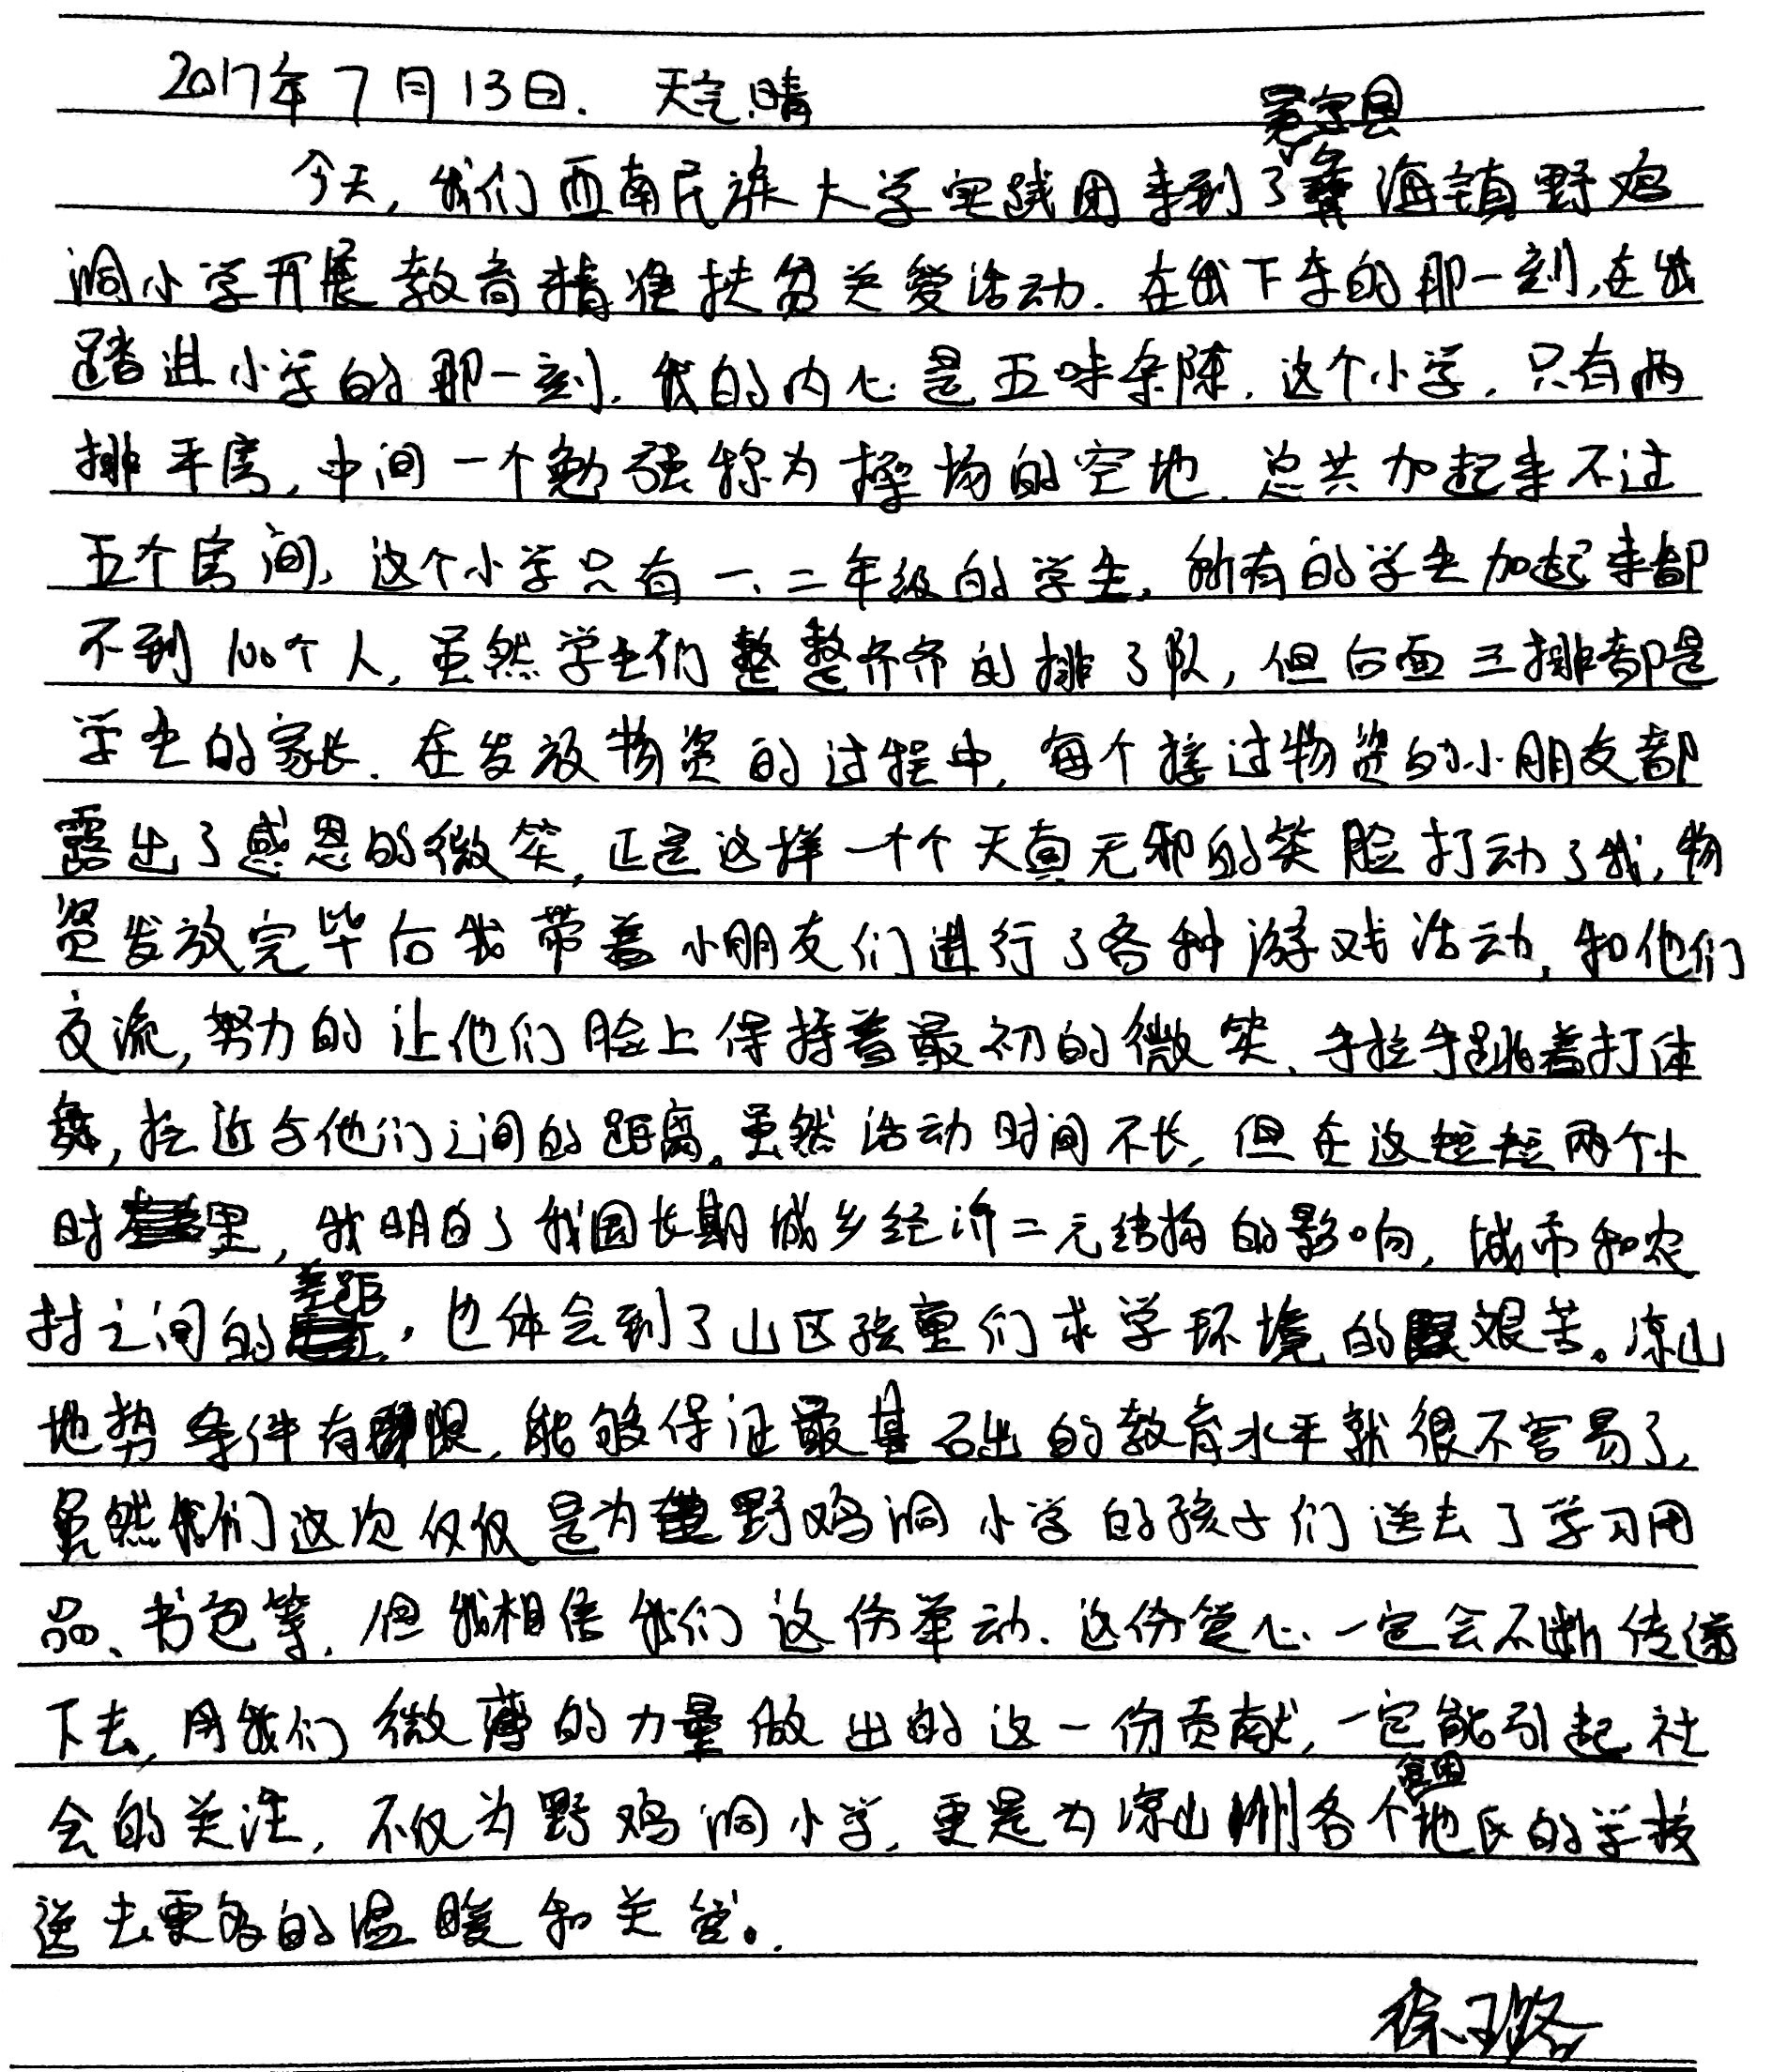 2017年7月13日. 天气.晴
今天,我们西南民族大学实践团来到了冕宁县彝海镇野鸡
洞小学开展教育精准扶贫关爱活动.在我下车的那一刻,在我
踏进小学的那一刻.我的内心是五味杂陈.这个小学,只有两
排平房,中间一个勉强称为操场的空地.总共加起来不过
五个房间,这个小学只有一、二年级的学生,所有的学生加起来都
不到100个人,虽然学生们整整齐齐的排了队,但后面三排都是
学生的家长.在发放物资的过程中,每个接过物资的小朋友都
露出了感恩的微笑,正是这样一个个天真无邪的笑脸打动了我,物
资发放完毕后我带着小朋友们进行了各种游戏活动,和他们
交流,努力的让他们脸上保持着最初的微笑、手拉手跳着打体
舞,拉近与他们之间的距离。虽然活动时间不长,但在这短短两个小
时里,我明白了我国长期城乡经济二元结构的影响,城市和农
村之间的差距,也体会到了山区孩童们求学环境的艰苦。凉山
地势条件有限,能够保证最基础的教育水平就很不容易了,
虽然我们这次仅仅是为野鸡洞小学的孩子们送去了学习用
品、书包等,但我相信我们这份举动.这份爱心.一定会不断传递
下去,用我们微薄的力量做出的这一份贡献,一定能引起社
会的关注,不仅为野鸡洞小学,更是为凉山州各个地区的学校
送去更多的温暖和关爱。